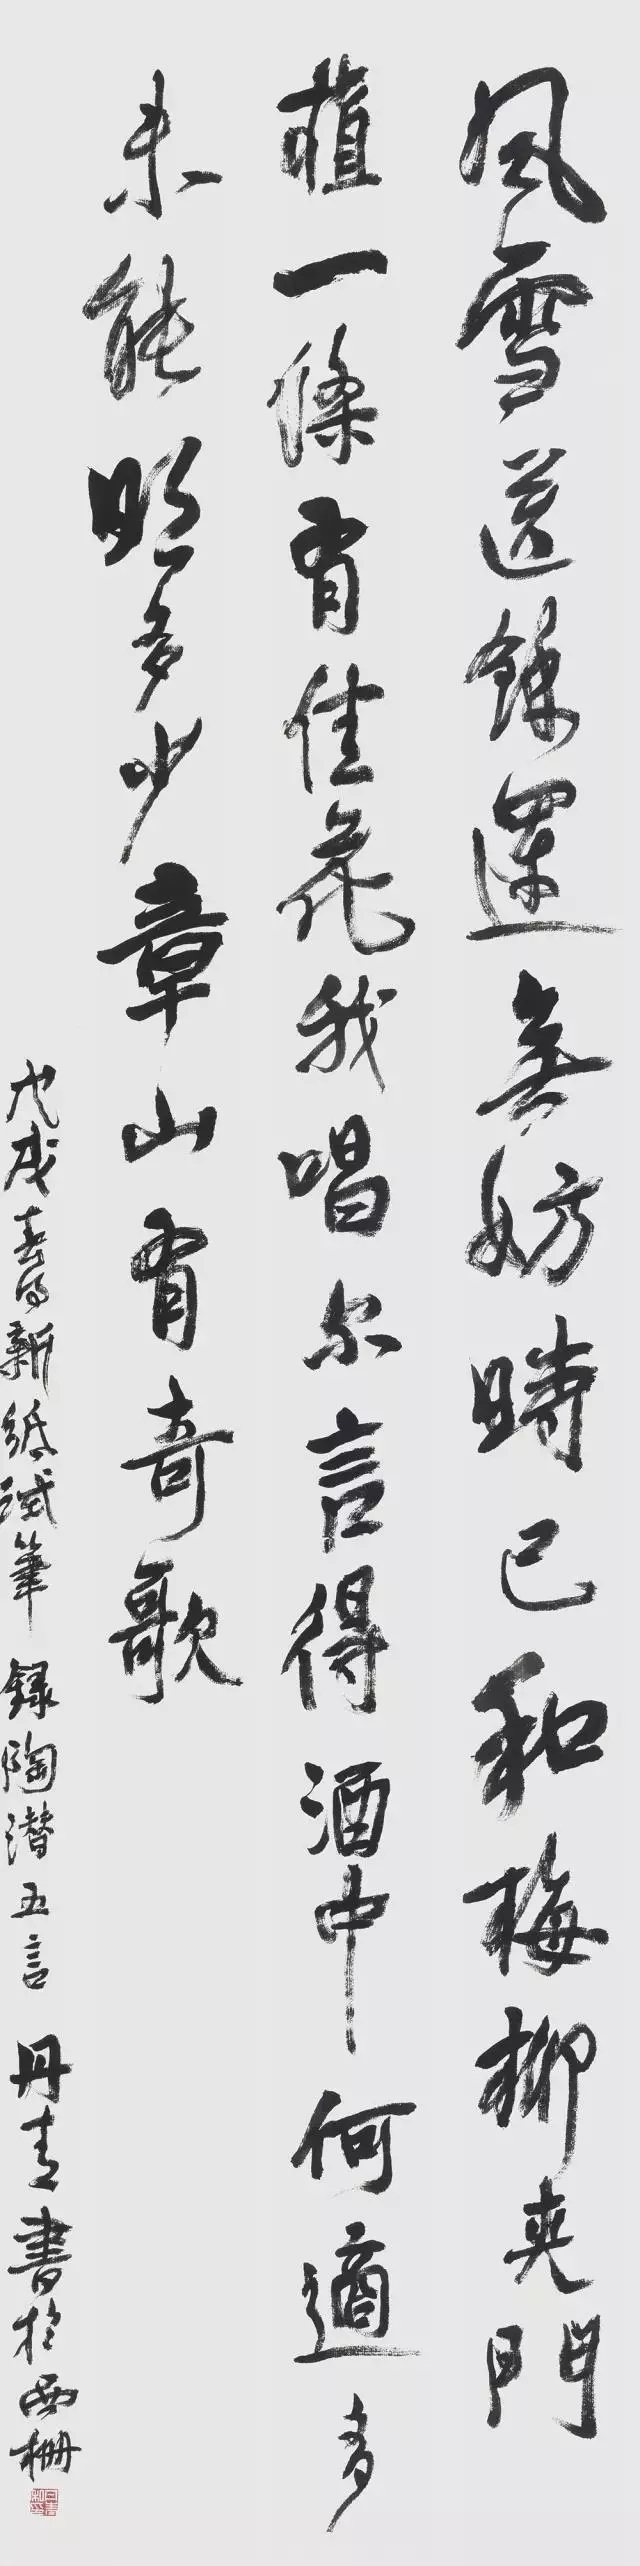 風雪送餘運無妨時已和梅柳夾門
植一條有佳花我唱尔言得酒中何適多
未能明多少章山有奇歌
戊戌春日新紙試筆 錄陶潛五言 丹青書於西柵